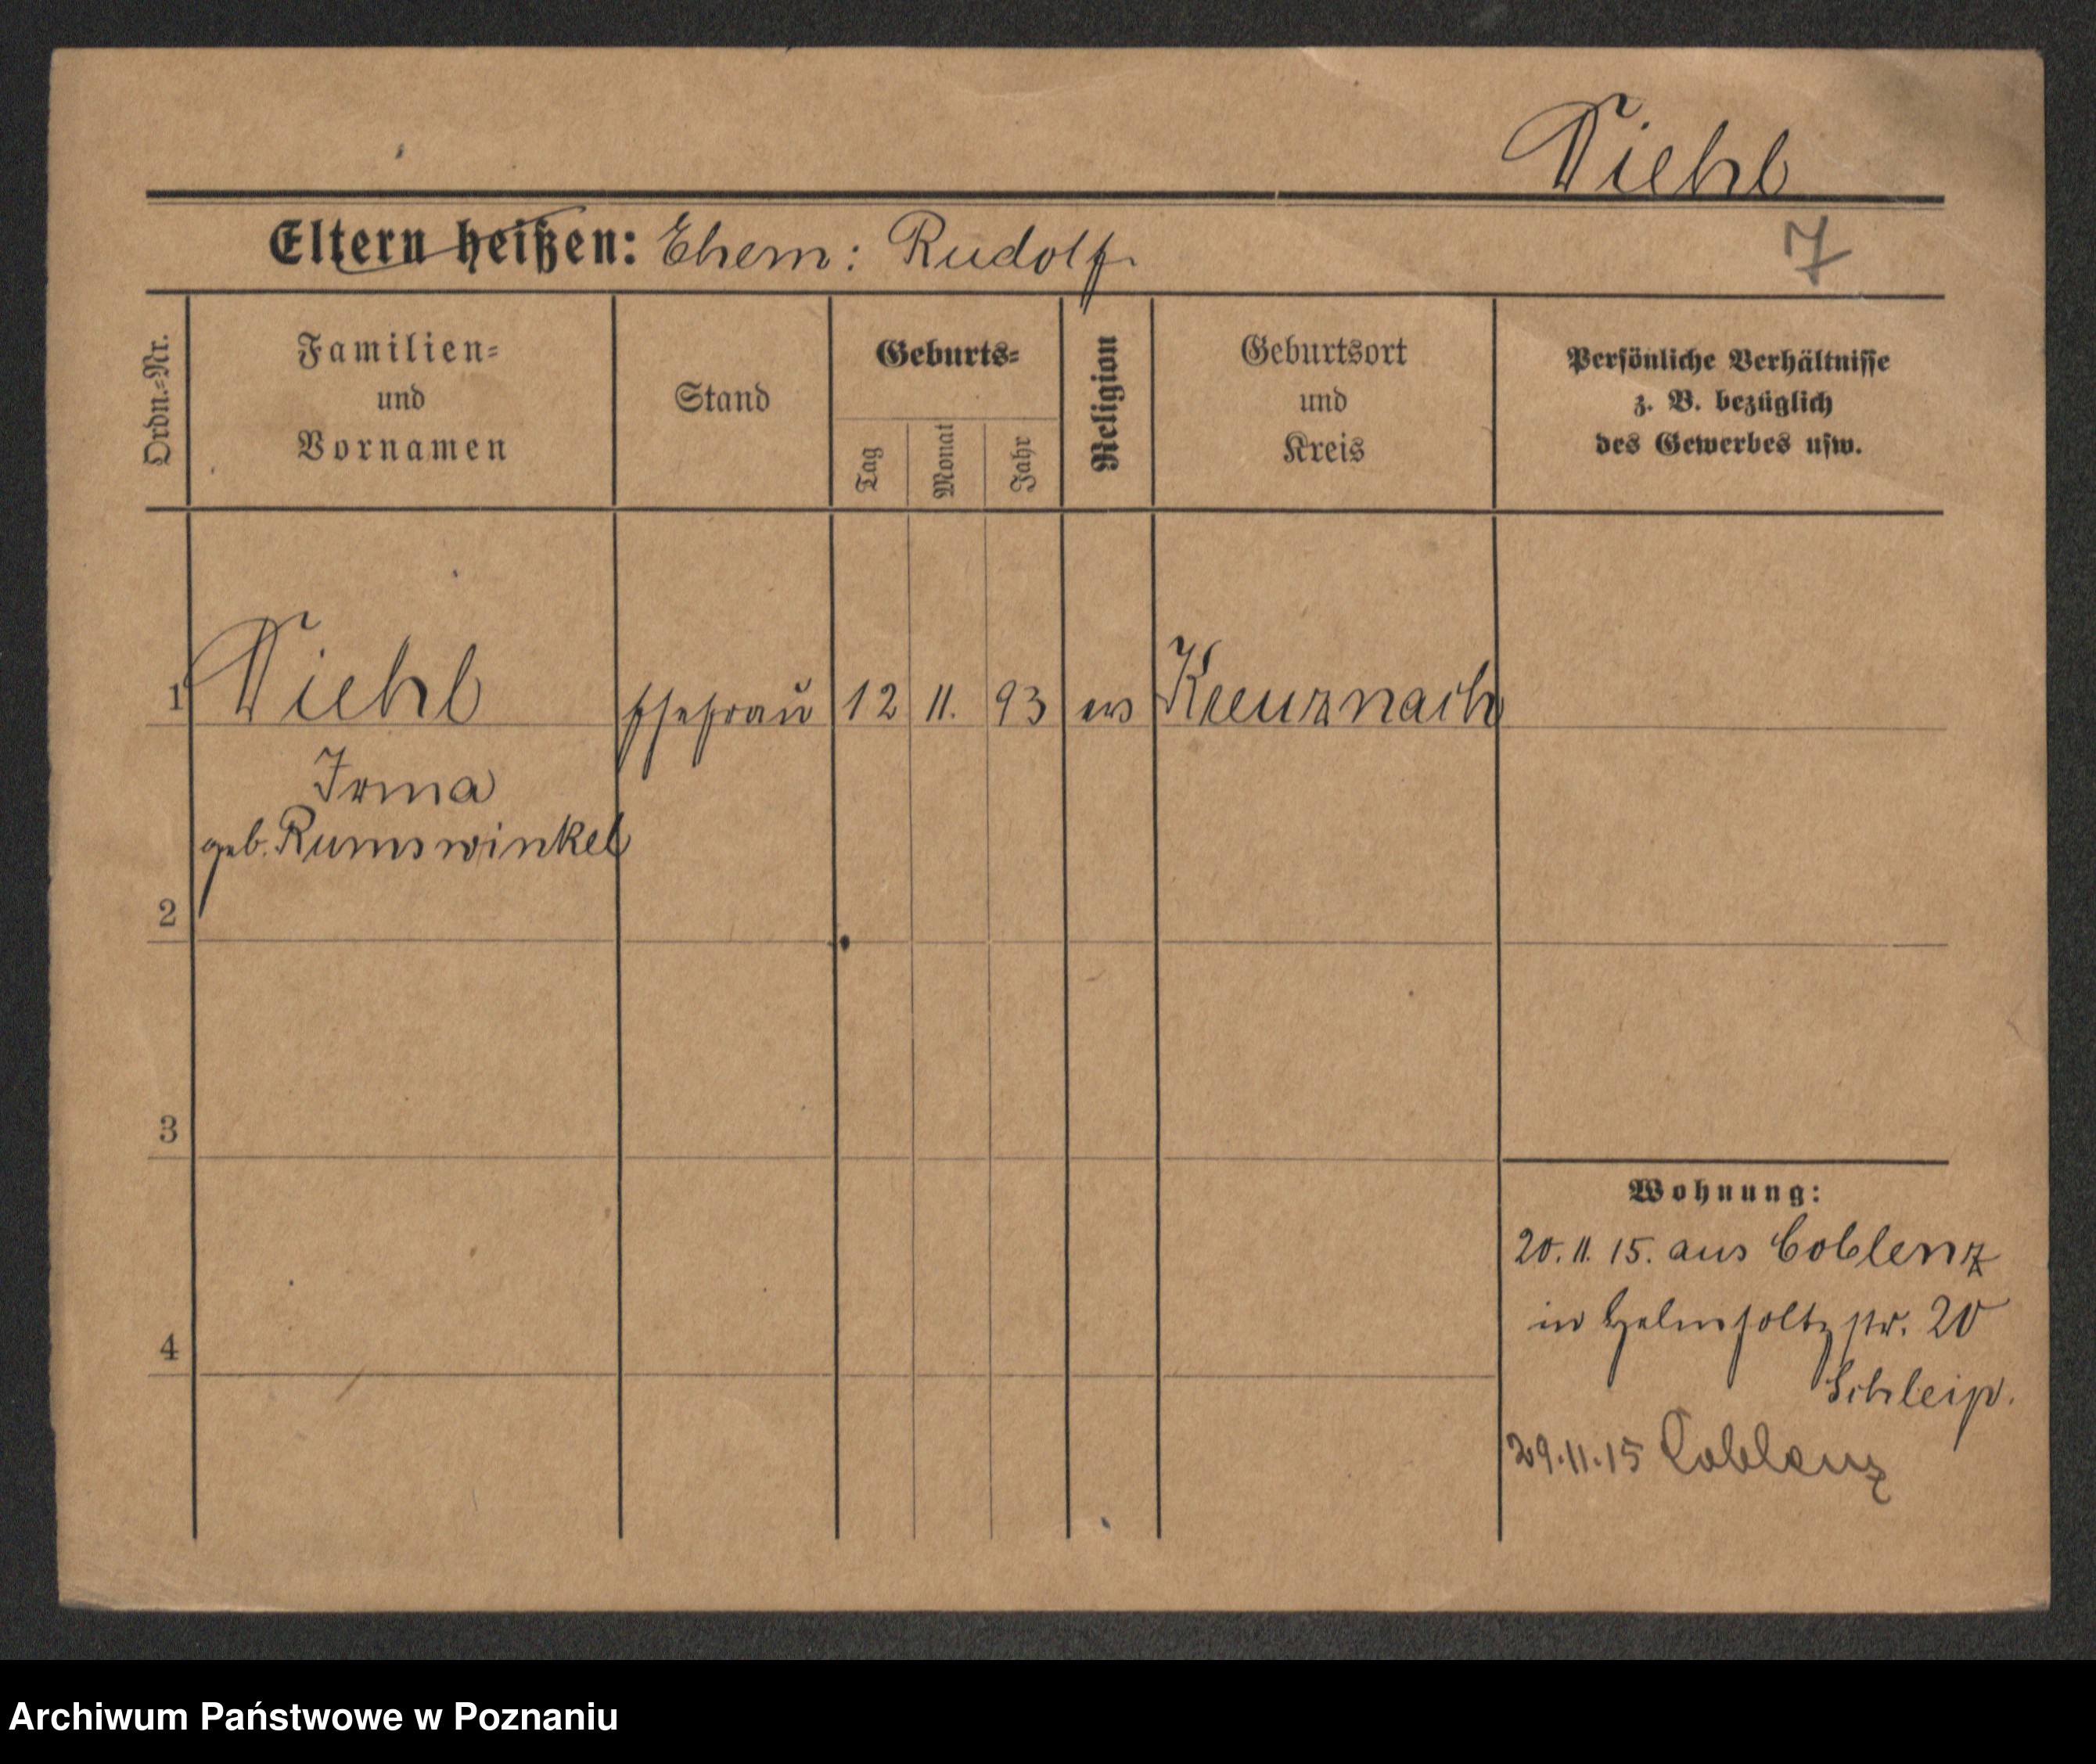 Viehl
Eltern heißen: Ehem: Rudolf
7
Ordn.-Nr.
Familien-
und
Vornamen
Stand
Geburts-
Tag
Monat
Jahr
Religion
Geburtsort
und
Kreis
Persönliche Verhältnisse
z. B. bezüglich
des Gewerbes usw.
1 Viehl Ehefrau 12 11. 93 ev Kreuznach
Irma
geb. Rumswinkel
2
3
4
Wohnung:
20. 11. 15. aus Coblenz
in Helmholtzstr. 20
Schleip.
29.11.15 Coblenz
Archiwum Państwowe w Poznaniu